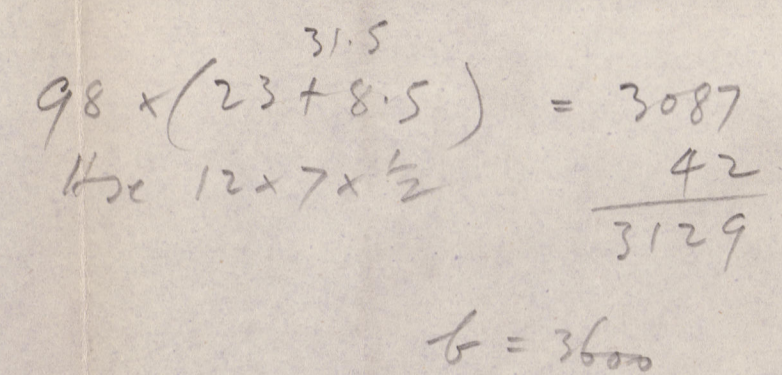 31.5
98 × (23 + 8.5) = 3087
Hse 12 × 7 × 1/2 42
3129
b = 3600